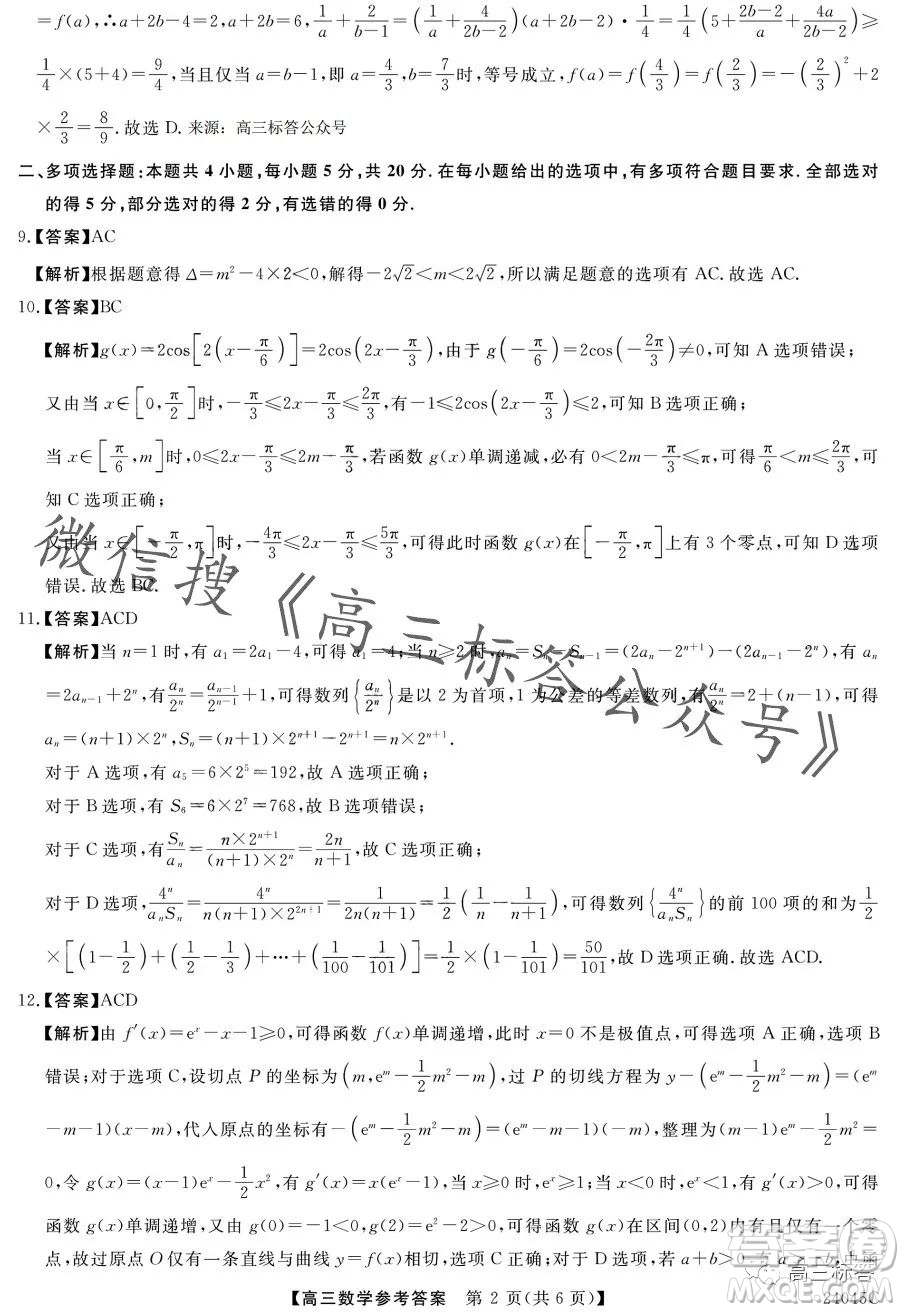 =f(a),∴a+2b-4=2,a+2b=6,1/a+2/(b-1)=(1/a+4/(2b-2))·1/4=1/4(5+(2b-2)/a+4a/(2b-2))≥
1/4×(5+4)=9/4,当且仅当a=b-1,即a=4/3,b=7/3时,等号成立,f(a)=f(4/3)=f(2/3)=-(2/3)²+2
×2/3=8/9.故选D. 来源:高三标答公众号
二、多项选择题:本题共4小题,每小题5分,共20分.在每小题给出的选项中,有多项符合题目要求.全部选对
的得5分,部分选对的得2分,有选错的得0分.
9.【答案】AC
【解析】根据题意得Δ=m²-4×2<0,解得-2√2<m<2√2,所以满足题意的选项有AC.故选AC.
10.【答案】BC
【解析】g(x)=2cos[2(x-π/6)]=2cos(2x-π/3),由于g(-π/6)=2cos(-2π/3)≠0,可知A选项错误;
又由当x∈[0,π/2]时,-π/3≤2x-π/3≤2π/3,有-1≤2cos(2x-π/3)≤2,可知B选项正确;
当x∈[π/6,m]时,0≤2x-π/3≤2m-π/3,若函数g(x)单调递减,必有0<2m-π/3≤π,可得π/6<m≤2π/3,可
知C选项正确;
又由当x∈[-π/2,π]时,-4π/3≤2x-π/3≤5π/3,可得此时函数g(x)在[-π/2,π]上有3个零点,可知D选项
错误.故选BC.
11.【答案】ACD
【解析】当n=1时,有a₁=2a₁-4,可得a₁=4;当n≥2时,aₙ=Sₙ-Sₙ₋₁=(2aₙ-2ⁿ⁺¹)-(2aₙ₋₁-2ⁿ),有aₙ
=2aₙ₋₁+2ⁿ,有aₙ/2ⁿ=aₙ₋₁/2ⁿ⁻¹+1,可得数列{aₙ/2ⁿ}是以2为首项,1为公差的等差数列,有aₙ/2ⁿ=2+(n-1),可得
aₙ=(n+1)×2ⁿ,Sₙ=(n+1)×2ⁿ⁺¹-2ⁿ⁺¹=n×2ⁿ⁺¹.
对于A选项,有a₅=6×2⁵=192,故A选项正确;
对于B选项,有S₆=6×2⁷=768,故B选项错误;
对于C选项,有Sₙ/aₙ=(n×2ⁿ⁺¹)/((n+1)×2ⁿ)=2n/(n+1),故C选项正确;
对于D选项,4ⁿ/(aₙSₙ)=4ⁿ/(n(n+1)×2²ⁿ⁺¹)=1/(2n(n+1))=1/2(1/n-1/(n+1)),可得数列{4ⁿ/(aₙSₙ)}的前100项的和为1/2
×[(1-1/2)+(1/2-1/3)+…+(1/100-1/101)]=1/2×(1-1/101)=50/101,故D选项正确.故选ACD.
12.【答案】ACD
【解析】由f′(x)=eˣ-x-1≥0,可得函数f(x)单调递增,此时x=0不是极值点,可得选项A正确,选项B
错误;对于选项C,设切点P的坐标为(m,eᵐ-1/2m²-m),过P的切线方程为y-(eᵐ-1/2m²-m)=(eᵐ
-m-1)(x-m),代入原点的坐标有-(eᵐ-1/2m²-m)=(eᵐ-m-1)(-m),整理为(m-1)eᵐ-1/2m²=
0,令g(x)=(x-1)eˣ-1/2x²,有g′(x)=x(eˣ-1),当x≥0时,eˣ≥1;当x<0时,eˣ<1,有g′(x)>0,可得
函数g(x)单调递增,又由g(0)=-1<0,g(2)=e²-2>0,可得函数g(x)在区间(0,2)内有且仅有一个零
点,故过原点O仅有一条直线与曲线y=f(x)相切,选项C正确;对于D选项,若a+b>
【高三数学参考答案 第2页(共6页)】 24045C
微信搜《高三标答公众号》
高三标答
答案圈